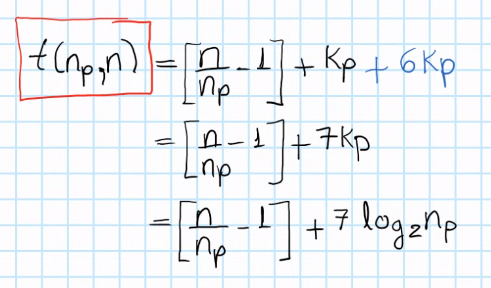 t(np,n) = [n/np - 1] + Kp + 6Kp
= [n/np - 1] + 7Kp
= [n/np - 1] + 7 log₂np